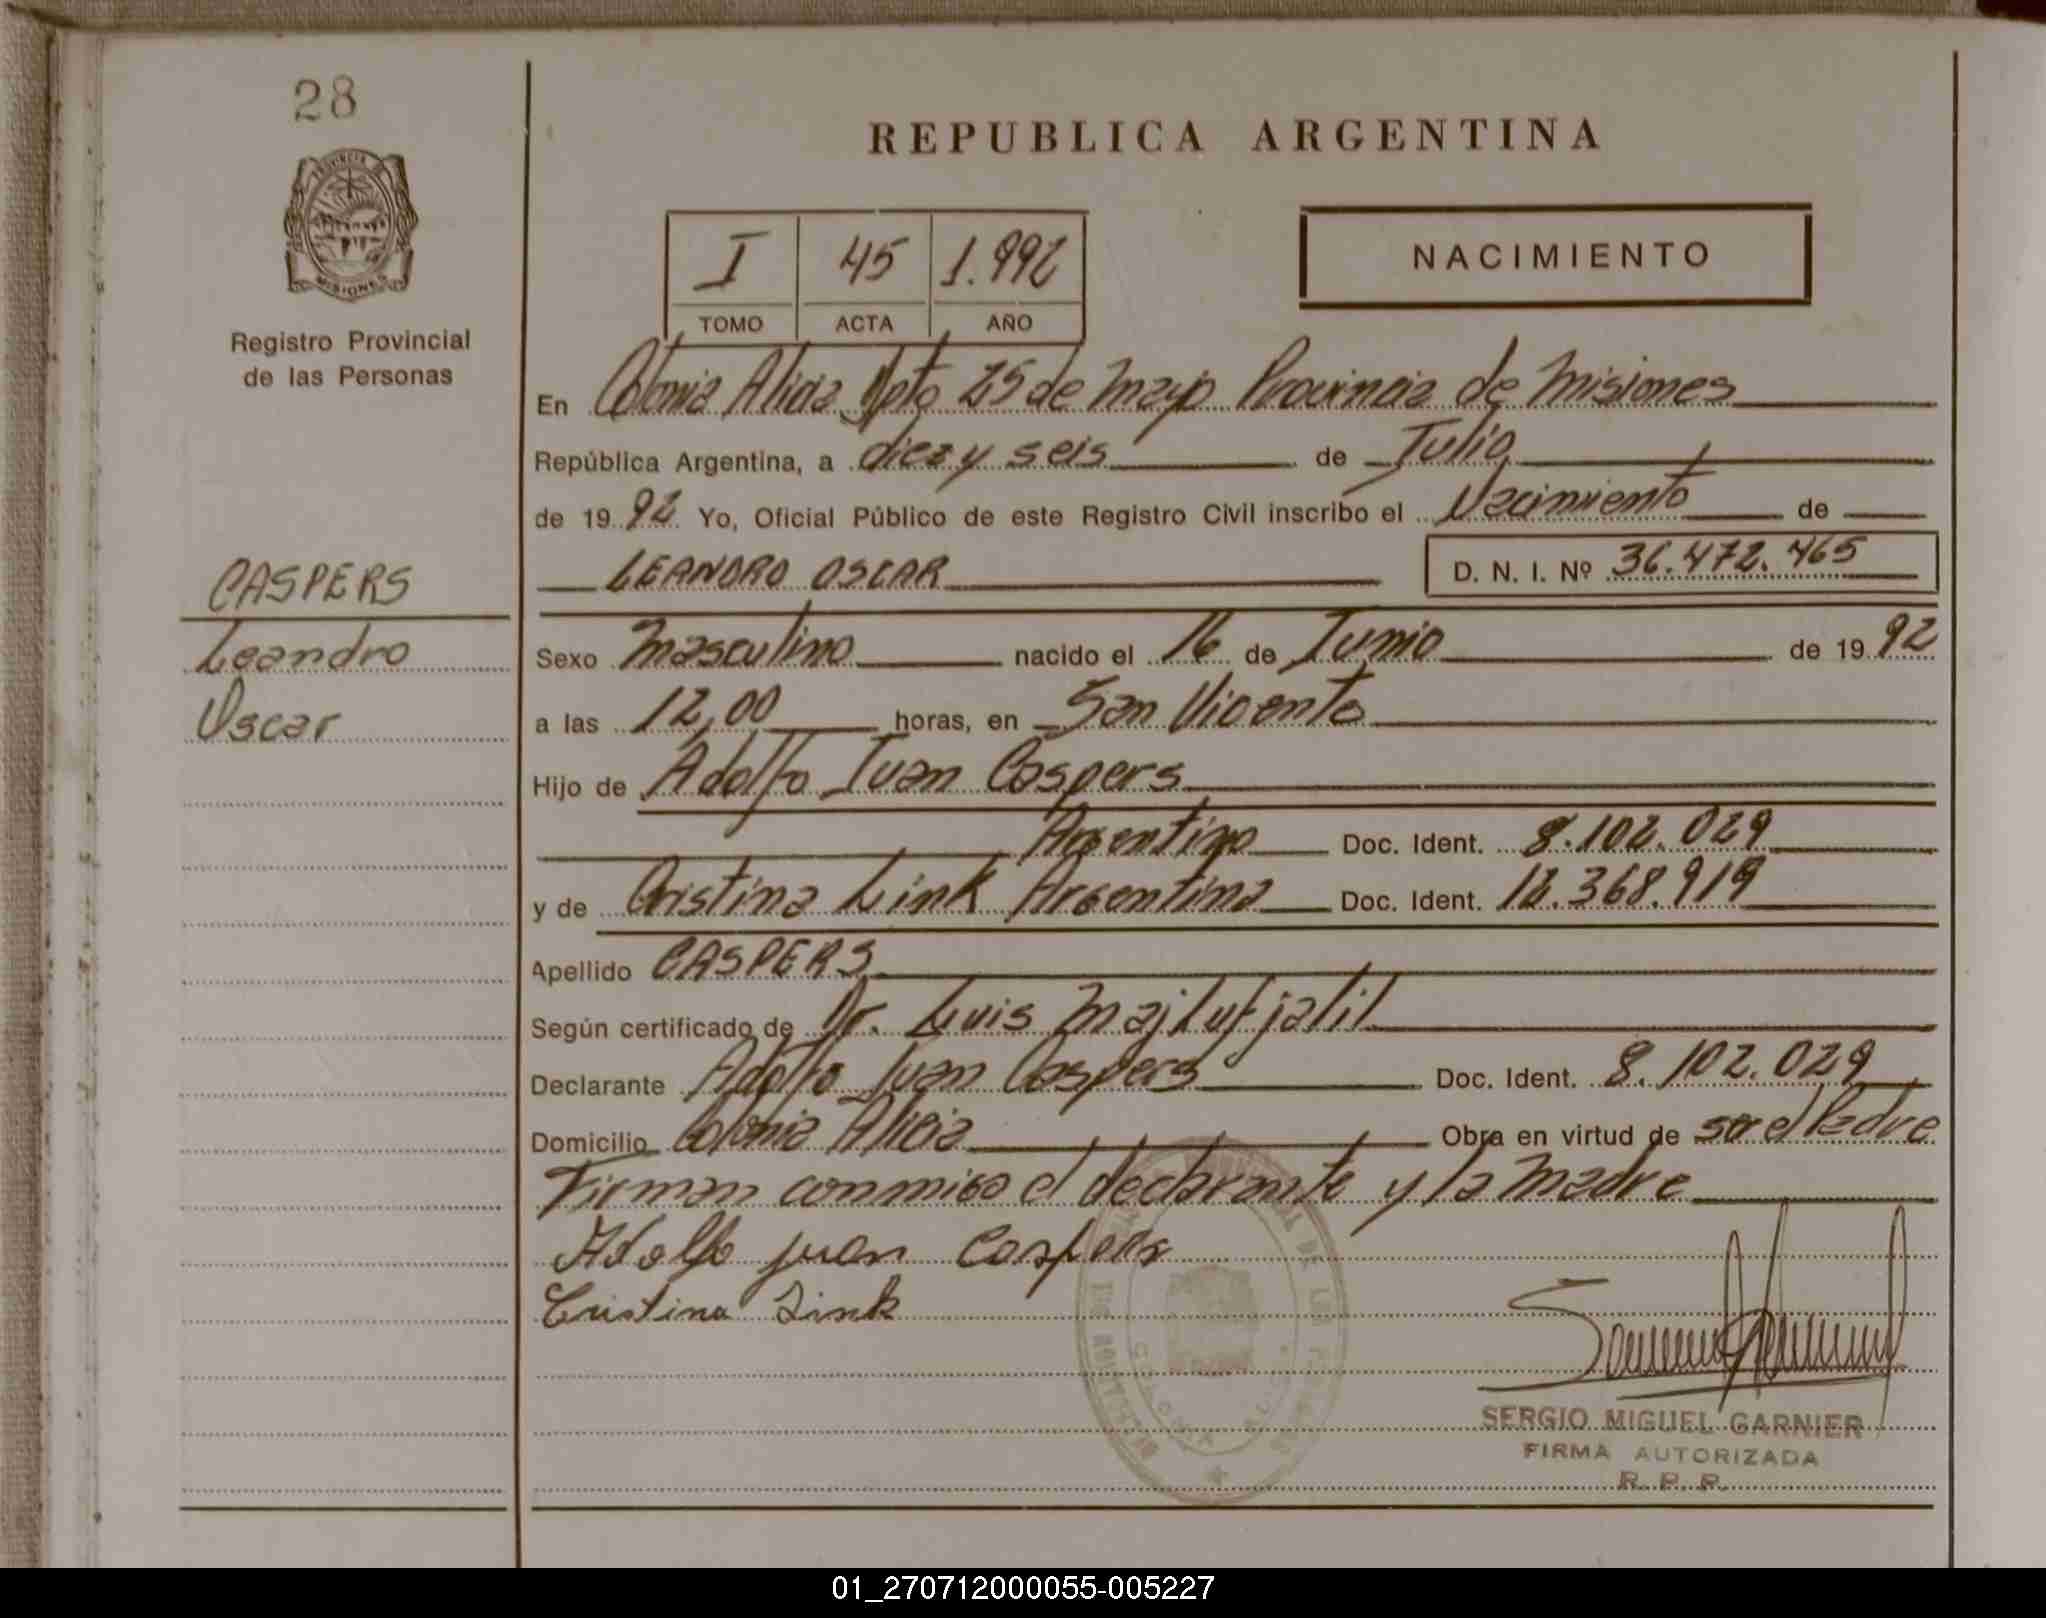 28
PROVINCIA DE
MISIONES
Registro Provincial
de las Personas
CASPERS
Leandro
Oscar
REPUBLICA ARGENTINA
I 45 1.992
TOMO ACTA AÑO
NACIMIENTO
En Colonia Alicia Dpto 25 de mayo Provincia de Misiones
República Argentina, a diez y seis de Julio
de 1992 Yo, Oficial Público de este Registro Civil inscribo el Nacimiento de
LEANDRO OSCAR D. N. I. Nº 36.472.465
Sexo masculino nacido el 16 de Junio de 1992
a las 12,00 horas, en San Vicente
Hijo de Adolfo Juan Caspers
Argentino Doc. Ident. 8.102.029
y de Cristina Link Argentina Doc. Ident. 12.368.919
Apellido CASPERS
Según certificado de Dr. Luis Majluf jalil
Declarante Adolfo Juan Caspers Doc. Ident. 8.102.029
Domicilio Colonia Alicia Obra en virtud de ser el Padre
Firman conmigo el declarante y la madre
Adolfo juan Caspers
Cristina Link
SERGIO MIGUEL GARNIER
FIRMA AUTORIZADA
R. P. P.
01_270712000055-005227